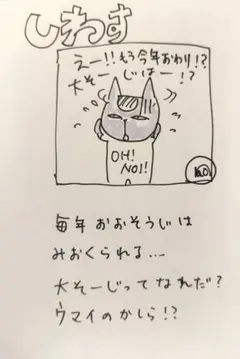 しわす
えー!!もう今年おわり!?
大そーじはー!?
OH!
NO!!
毎年おおそうじは
みおくられる...
大そーじってなれだ?
ウマイのかしら!?